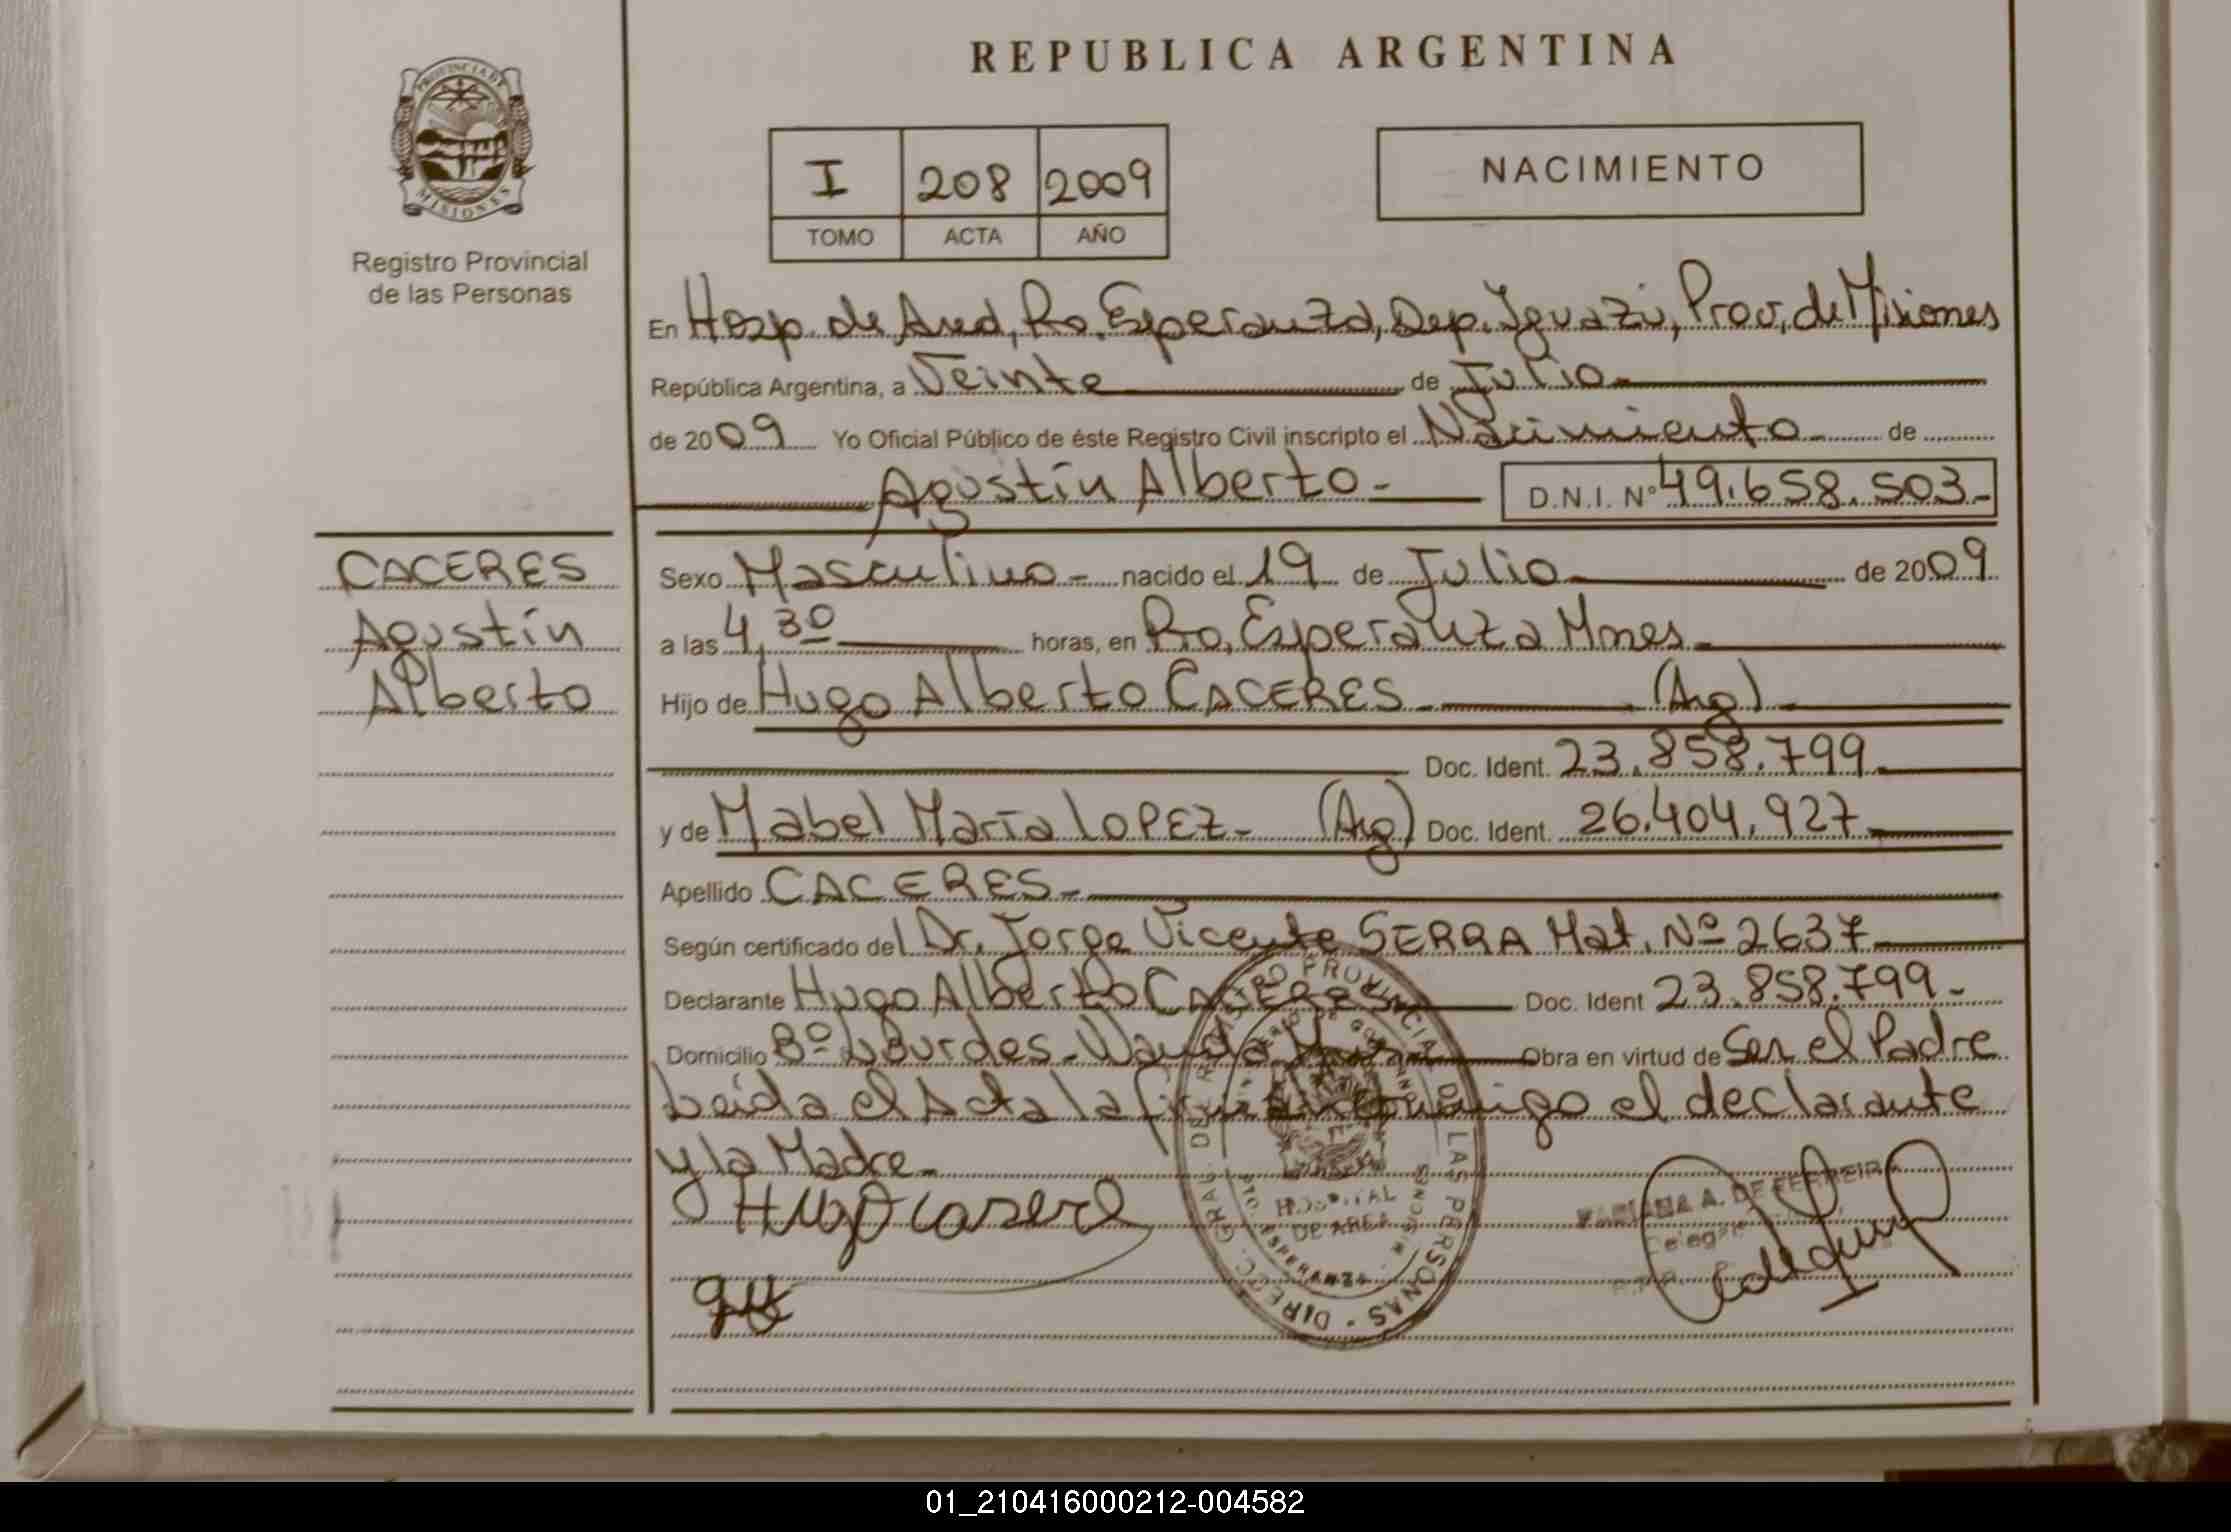 REPUBLICA ARGENTINA
PROVINCIA DE
MISIONES
Registro Provincial
de las Personas
I 208 2009
TOMO ACTA AÑO
NACIMIENTO
En Hosp. de Area, Pto. Esperanza, Dep. Iguazú, Prov. de Misiones
República Argentina, a Veinte de Julio
de 2009 Yo Oficial Público de éste Registro Civil inscripto el Nacimiento de
Agustín Alberto - D.N.I. Nº 49.658.503.-
CACERES
Agustín
Alberto
Sexo Masculino - nacido el 19 de Julio de 2009
a las 4,30 horas, en Pto. Esperanza Mnes.
Hijo de Hugo Alberto CACERES - (Arg) -
Doc. Ident. 23.858.799
y de Mabel María LOPEZ - (Arg) Doc. Ident. 26.404.927
Apellido CACERES -
Según certificado del Dr. Jorge Vicente SERRA Mat. Nº 2637
Declarante Hugo Alberto CACERES Doc. Ident 23.858.799 -
Domicilio Bº Lourdes - Wanda Obra en virtud de Ser el Padre
Leída el Acta la firman conmigo el declarante
y la Madre -
HOSPITAL
DE AREA
ESPERANZA
DIREC. GRAL. DEL REGISTRO PROVINCIAL DE LAS PERSONAS
MARIANA A. DE FERREIRA
01_210416000212-004582